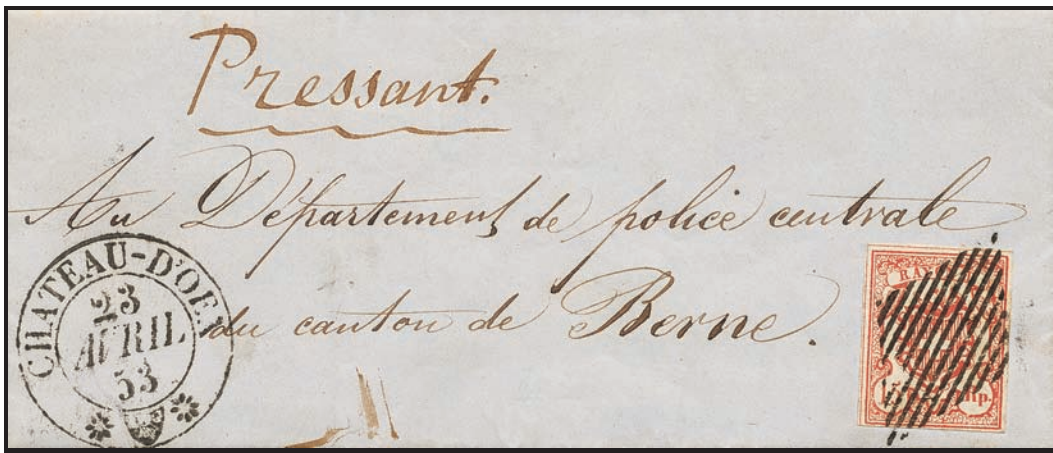 Pressant.
Au Département de police centrale
du canton de Berne.
CHATEAU-D'OEX
23
AVRIL
53
RA
Rp.